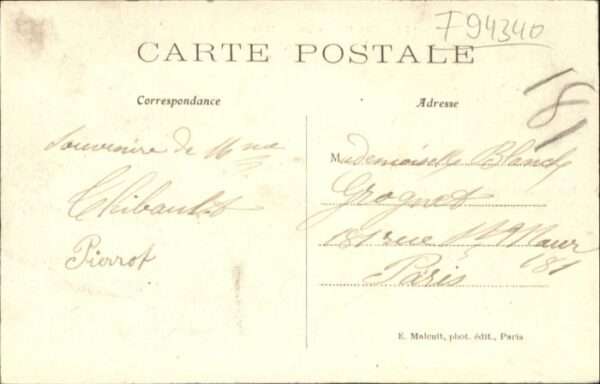 F 94340
CARTE POSTALE
Correspondance
Adresse
181
Souvenire de Mme
Thibault
Pierrot
Mademoiselle Blanch
Grognet
181 rue St Maur
181
Paris
E. Malcuit, phot. édit., Paris